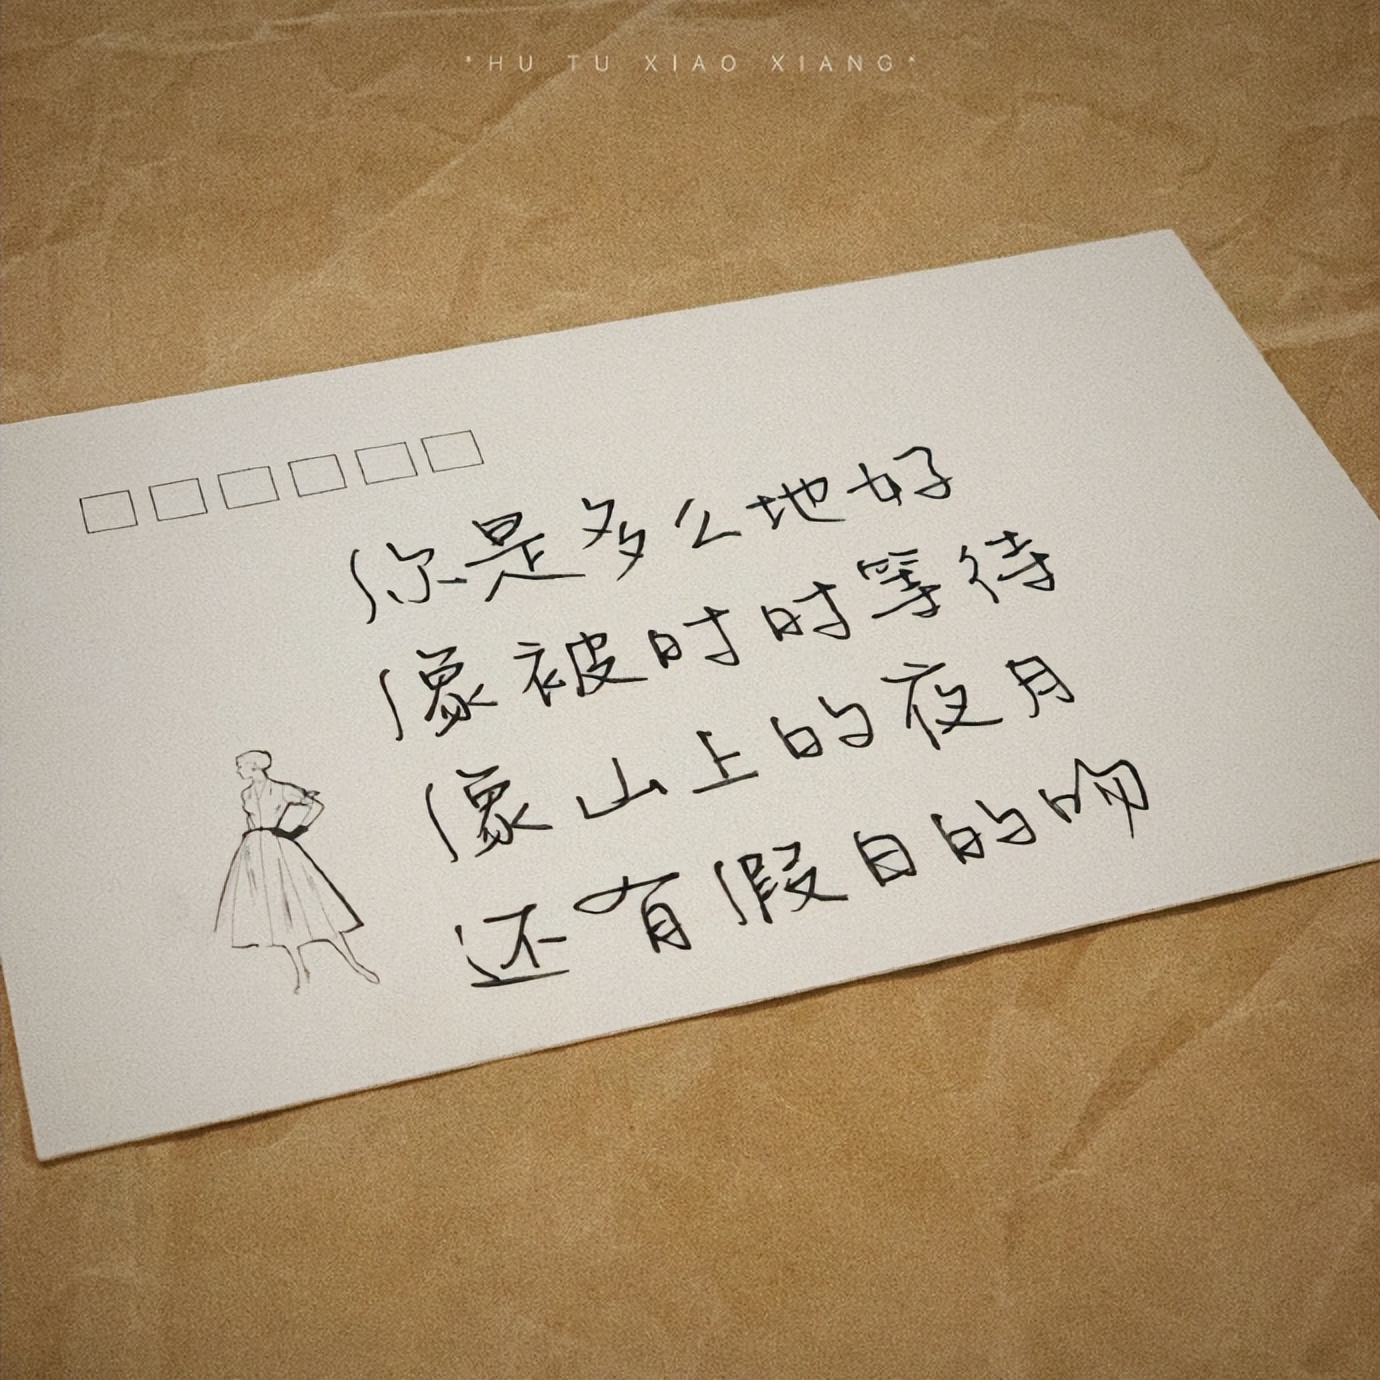 *HU TU XIAO XIANG*
你是多么地好
像被时时等待
像山上的夜月
还有假日的吻